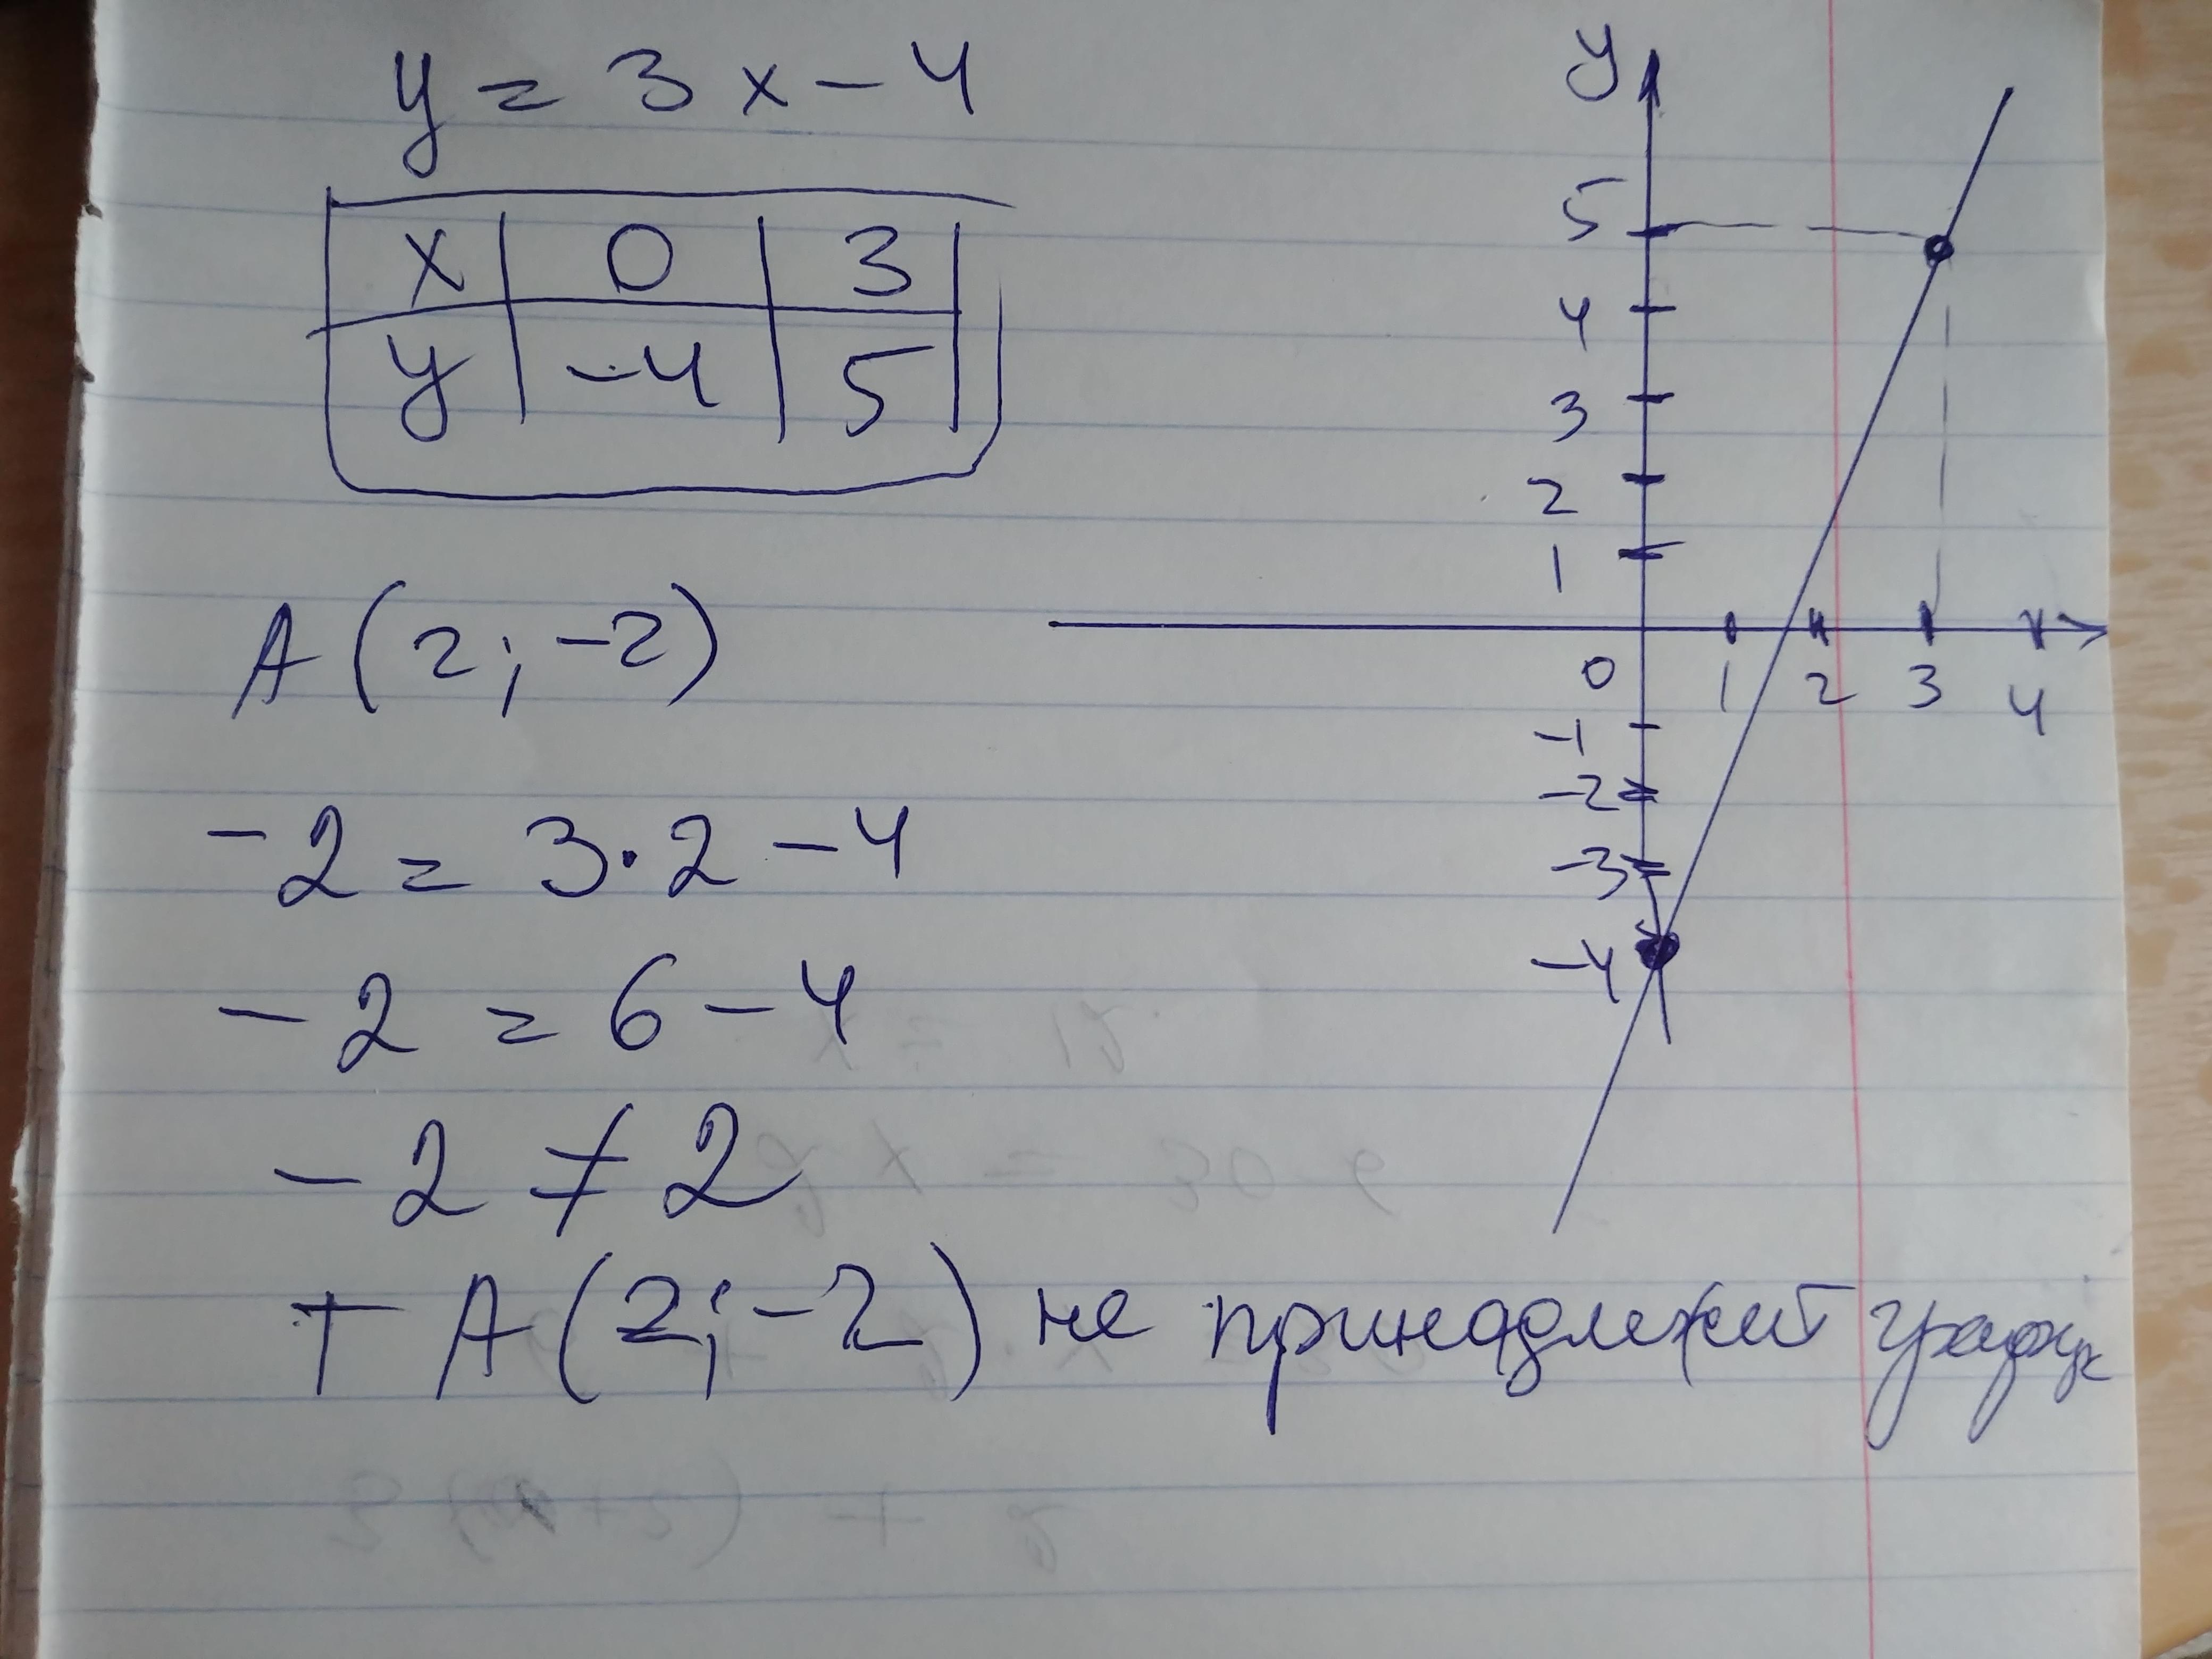 y = 3x - 4
x 0 3
y -4 5
A (2; -2)
-2 = 3·2 - 4
-2 = 6 - 4
-2 ≠ 2
т A (2; -2) не принадлежит
y
5
4
3
2
1
0 1 2 3 4
-1
-2
-3
-4